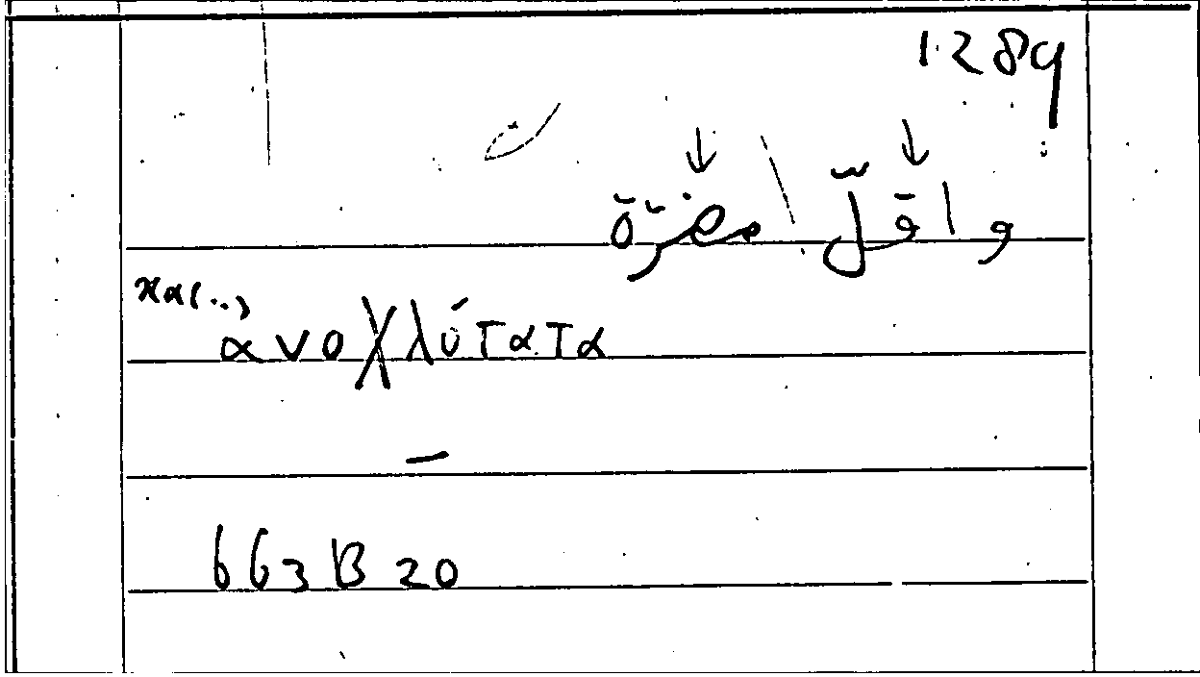 1289
واقلّ مضرّة
κα(..)
ανοχλότατα
663B20